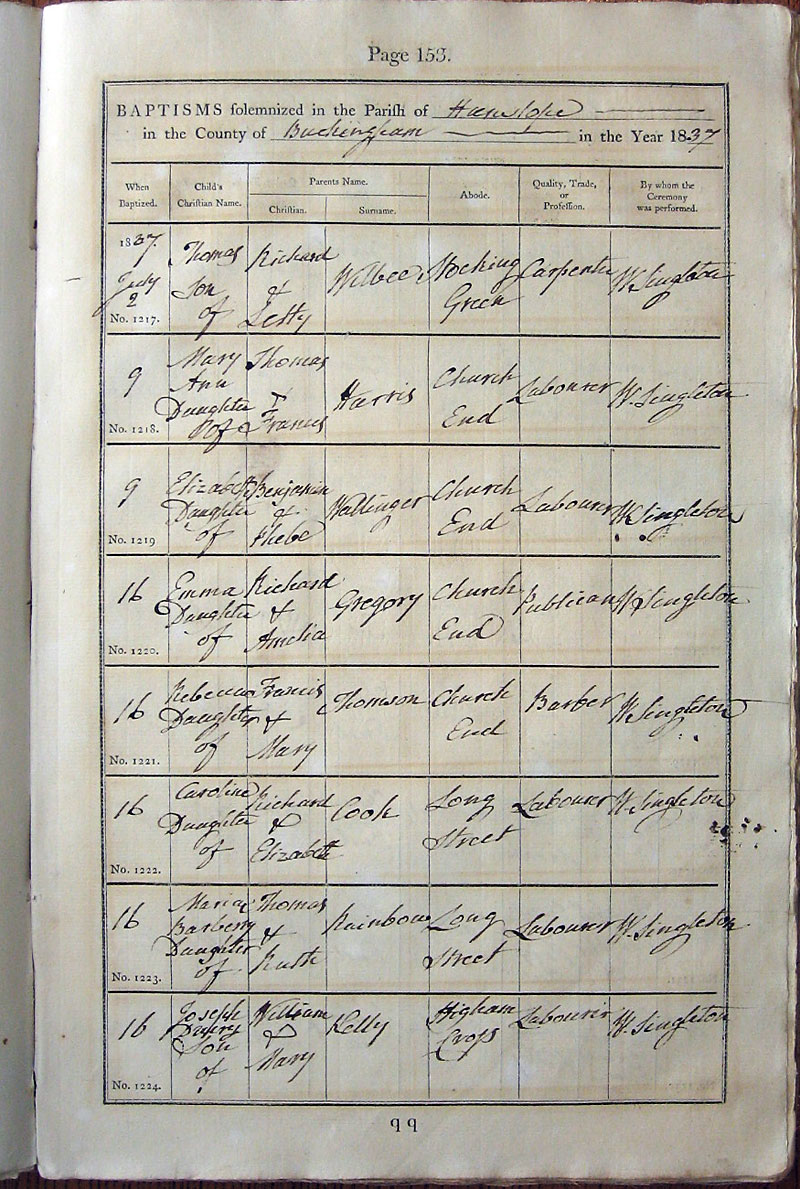 Page 153.
BAPTISMS solemnized in the Parish of Hanslope
in the County of Buckingham in the Year 1837
When Baptized.
Child's Christian Name.
Parents Name.
Christian.
Surname.
Abode.
Quality, Trade, or Profession.
By whom the Ceremony was performed.
1837
July
2
No. 1217.
Thomas
Son
of
Richard
&
Letty
Wilbee
Stocking
Green
Carpenter
W. Singleton
9
No. 1218.
Mary
Ann
Daughter
of
Thomas
&
Frances
Harris
Church
End
Labourer
W. Singleton
9
No. 1219
Elizabeth
Daughter
of
Benjamin
&
Phebe
Wallinger
Church
End
Labourer
W. Singleton
16
No. 1220.
Emma
Daughter
of
Richard
&
Amelia
Gregory
Church
End
Publican
W. Singleton
16
No. 1221.
Rebecca
Daughter
of
Francis
&
Mary
Thomson
Church
End
Barber
W. Singleton
16
No. 1222.
Caroline
Daughter
of
Richard
&
Elizabeth
Cook
Long
Street
Labourer
W. Singleton
16
No. 1223.
Maria
Barbery
Daughter
of
Thomas
&
Ruth
Rainbow
Long
Street
Labourer
W. Singleton
16
No. 1224.
Joseph
Son
of
William
&
Mary
Kelly
Higham
Cross
Labourer
W. Singleton
99